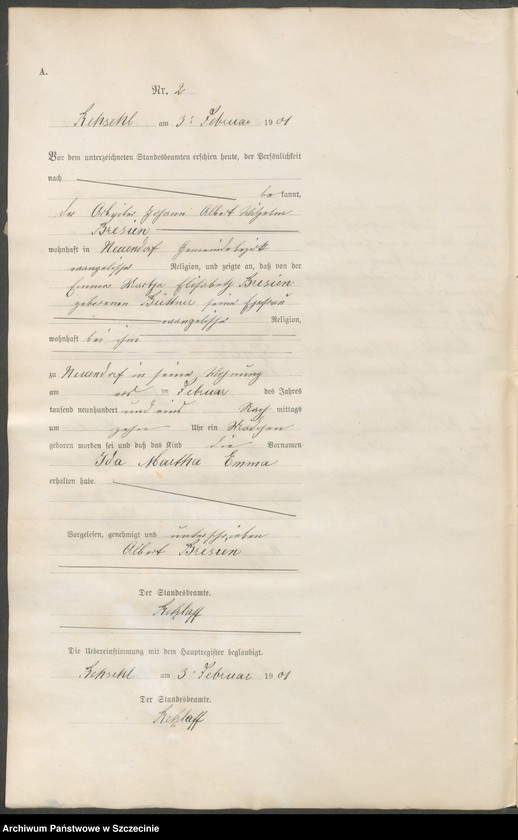 A.
Nr. 2
am 3. Februar 1901
Vor dem unterzeichneten Standesbeamten erschien heute, der Persönlichkeit
nach
bekannt,
der Arbeiter Johann Albert Wilhelm
Bresien
wohnhaft in Neuendorf Gemeindebezirk
evangelischer Religion, und zeigte an, daß von der
Emma Martha Elisabeth Bresien
geborenen Büttner seine Ehefrau
evangelischer Religion,
wohnhaft bei ihm
zu Neuendorf in seiner Wohnung
am Februar des Jahres
tausend neunhundert und eins Nachmittags
um zehn Uhr ein Mädchen
geboren worden sei und daß das Kind die Vornamen
Ida Martha Emma
erhalten habe.
Vorgelesen, genehmigt und unterschrieben
Albert Bresien
Der Standesbeamte.
Die Uebereinstimmung mit dem Hauptregister beglaubigt.
am 3. Februar 1901
Der Standesbeamte.
Archiwum Państwowe w Szczecinie